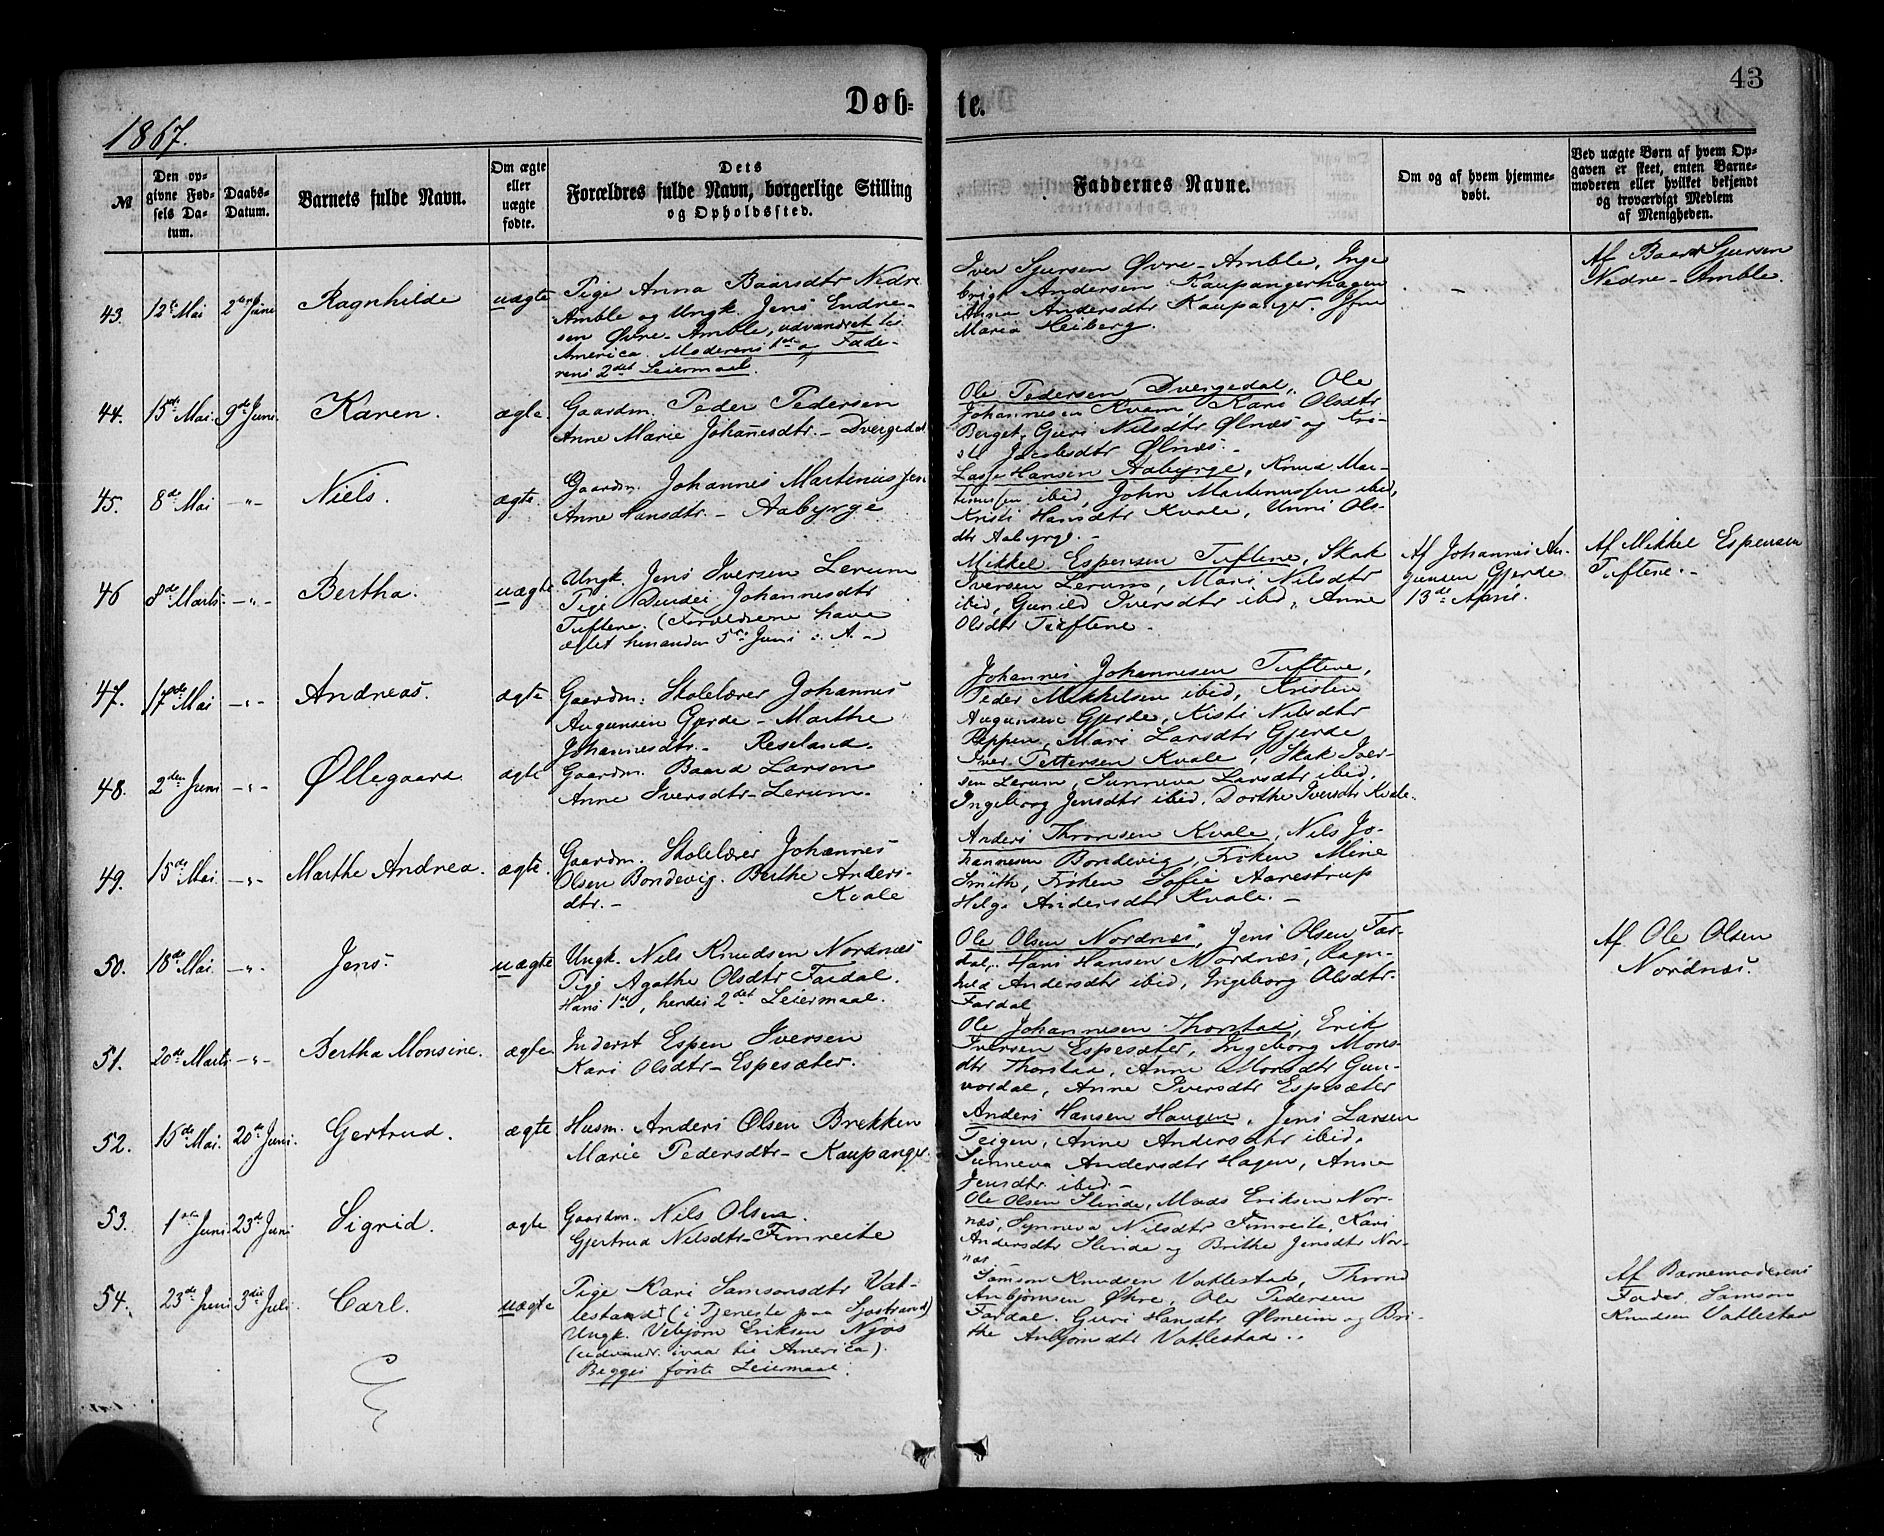 43
Døb-
te.
1867.
№
Den op-
givne Fød-
sels Da-
tum.
Daabs-
Datum.
Barnets fulde Navn.
Om ægte
eller
uægte
fødte.
Dets
Forældres fulde Navn, borgerlige Stilling
og Opholdssted.
Faddernes Navne.
Om og af hvem hjemme-
døbt.
Ved uægte Børn af hvem Op-
gaven er skeet, enten Barne-
moderen eller hvilket bekjendt
og troværdigt Medlem
af Menigheden.
43.
12te Mai
2den Juni
Ragnhilde
uægte
Pige Anna Baarsdtr Nedre
Amble og Ungk. Jens Endre-
sen Øvre-Amble, udvandret til
America. Moderens 1ste og Fade-
rens 2det Leiermaal.
Iver Sjursen Øvre-Amble, Inge
brigt Andersen Kaupangerhagen
Anna Andersdtr Kaupanger. Jfru
Maria Heiberg.
-
Af Baard Sjursen
Nedre-Amble.
44.
15de Mai.
9de Juni.
Karen.
ægte.
Gaardm. Peder Pedersen
Anne Marie Johañesdtr. - Dvergedal
Ole Pedersen Dvergedal, Ole
Johannesen Kvam, Kari Olsdtr
Berget, Guri Nilsdtr Ølnæs og Kri-
sti Jacobsdtr Ølnæs.
45.
8de Mai
-"-
Niels.
ægte.
Gaardm. Johannes Martinussen
Anne Hansdtr. - Aabyrge
Lasse Hansen Aabyrge, Knud Mar-
tinussen ibid, John Martinussen ibid,
Kristi Hansdtr Kvale, Unni Ols-
dtr Aabyrge. -
46
8de Marts.
-"-
Bertha.
uægte
Ungk. Jens Iversen Lerum
Pige Durdei Johannesdtr
Tuftene. (Forældrene have
ægtet hinanden 5te Juni d. A. -)
Mikkel Espensen Tuftene, Skak
Iversen Lerum, Mari Nilsdtr
ibid, Gunild Iversdtr ibid, Anne
Olsdtr Tuftene -
Af Johannes Au-
gunsen Gjerde
13de April.
Af Mikkel Espensen
Tuftene. -
47.
17de Mai
-"-
Andreas.
ægte
Gaardm. Skolelærer Johannes
Augunsen Gjerde - Marthe
Johannesdtr. - Reseland.
Johannes Johannesen Tuftene,
Peder Mikkelsen ibid, Kristen
Augunsen Gjerde, Kisti Nilsdtr
Reppen, Mari Larsdtr Gjerde
48.
2den Juni
-"-
Øllegaard
ægte
Gaardm. Baard Larsen
Anne Iversdtr - Lerum.
Iver Pettersen Kvale, Skak Iver-
sen Lerum, Sunneva Larsdtr ibid,
Ingeborg Jensdtr ibid. Dorthe Iversdtr Kvale.
49.
15de Mai
-"-
Marthe Andrea.
ægte.
Gaardm. Skolelærer Johannes
Olsen Bondevig. Berthe Anders-
dtr. - Kvale
Anders Thronsen Kvale, Nils Jo-
hannesen Bondevig, Frøken Mine
Smith, Frøken Sofie Aarestrup
Helge Andersdtr Kvale. -
50.
18de Mai.
-"-
Jens.
uægte
Ungk. Nils Knudsen Nordnæs
Pige Agathe Olsdtr Fardal.
Hans 1ste, hendes 2det Leiermaal.
Ole Olsen Nordnæs, Jens Olsen Far-
dal, Hans Hansen Nordnæs, Ragn-
hild Andersdtr ibid, Ingeborg Olsdtr
Fardal
Af Ole Olsen
Nordnæs.
51.
20de Marts
-"-
Bertha Monsine.
ægte
Inderst Espen Iversen
Kari Olsdtr - Espesæter.
Ole Johannesen Thorstad, Erik
Iversen Espesæter, Ingeborg Mons-
dtr Thorstad, Anne Monsdtr Gun-
vordal, Anne Iversdtr Espesæter
52.
15de Mai.
20de Juni.
Gertrud.
ægte
Husm. Anders Olsen Brekken
Marie Pedersdtr - Kaupanger
Anders Hansen Haugen, Jens Larsen
Teigen, Anne Andersdtr ibid,
Sunneva Andersdtr Hagen, Anne
Jensdtr ibid. -
53.
1ste Juni
23de Juni
Sigrid.
ægte
Gaardm. Nils Olsen
Gjertrud Nilsdtr - Fimreite
Ole Olsen Slinde, Mads Eriksen Nor-
næs, Synneva Nilsdtr Fimreite, Kari
Andersdtr Slinde og Brithe Jensdtr Nor-
næs
54.
23de Juni
3die Juli
Carl.
uægte
Pige Kari Samsonsdtr Vat-
lestand (i Tjeneste paa Sjøstrand)
Ungk. Vebjørn Eriksen Njøs
(udvandr. ivaar til America).
Begges første Leiermaal.
Samson Knudsen Vatlestad, Thrond
Anbjørnsen Øhre, Ole Pedersen
Fardal. Guri Hansdtr Ølmeim og Bri-
the Anbjørnsdtr Vatlestad.
Af Barnemoderens
Fader, Samson
Knudsen Vatlestad